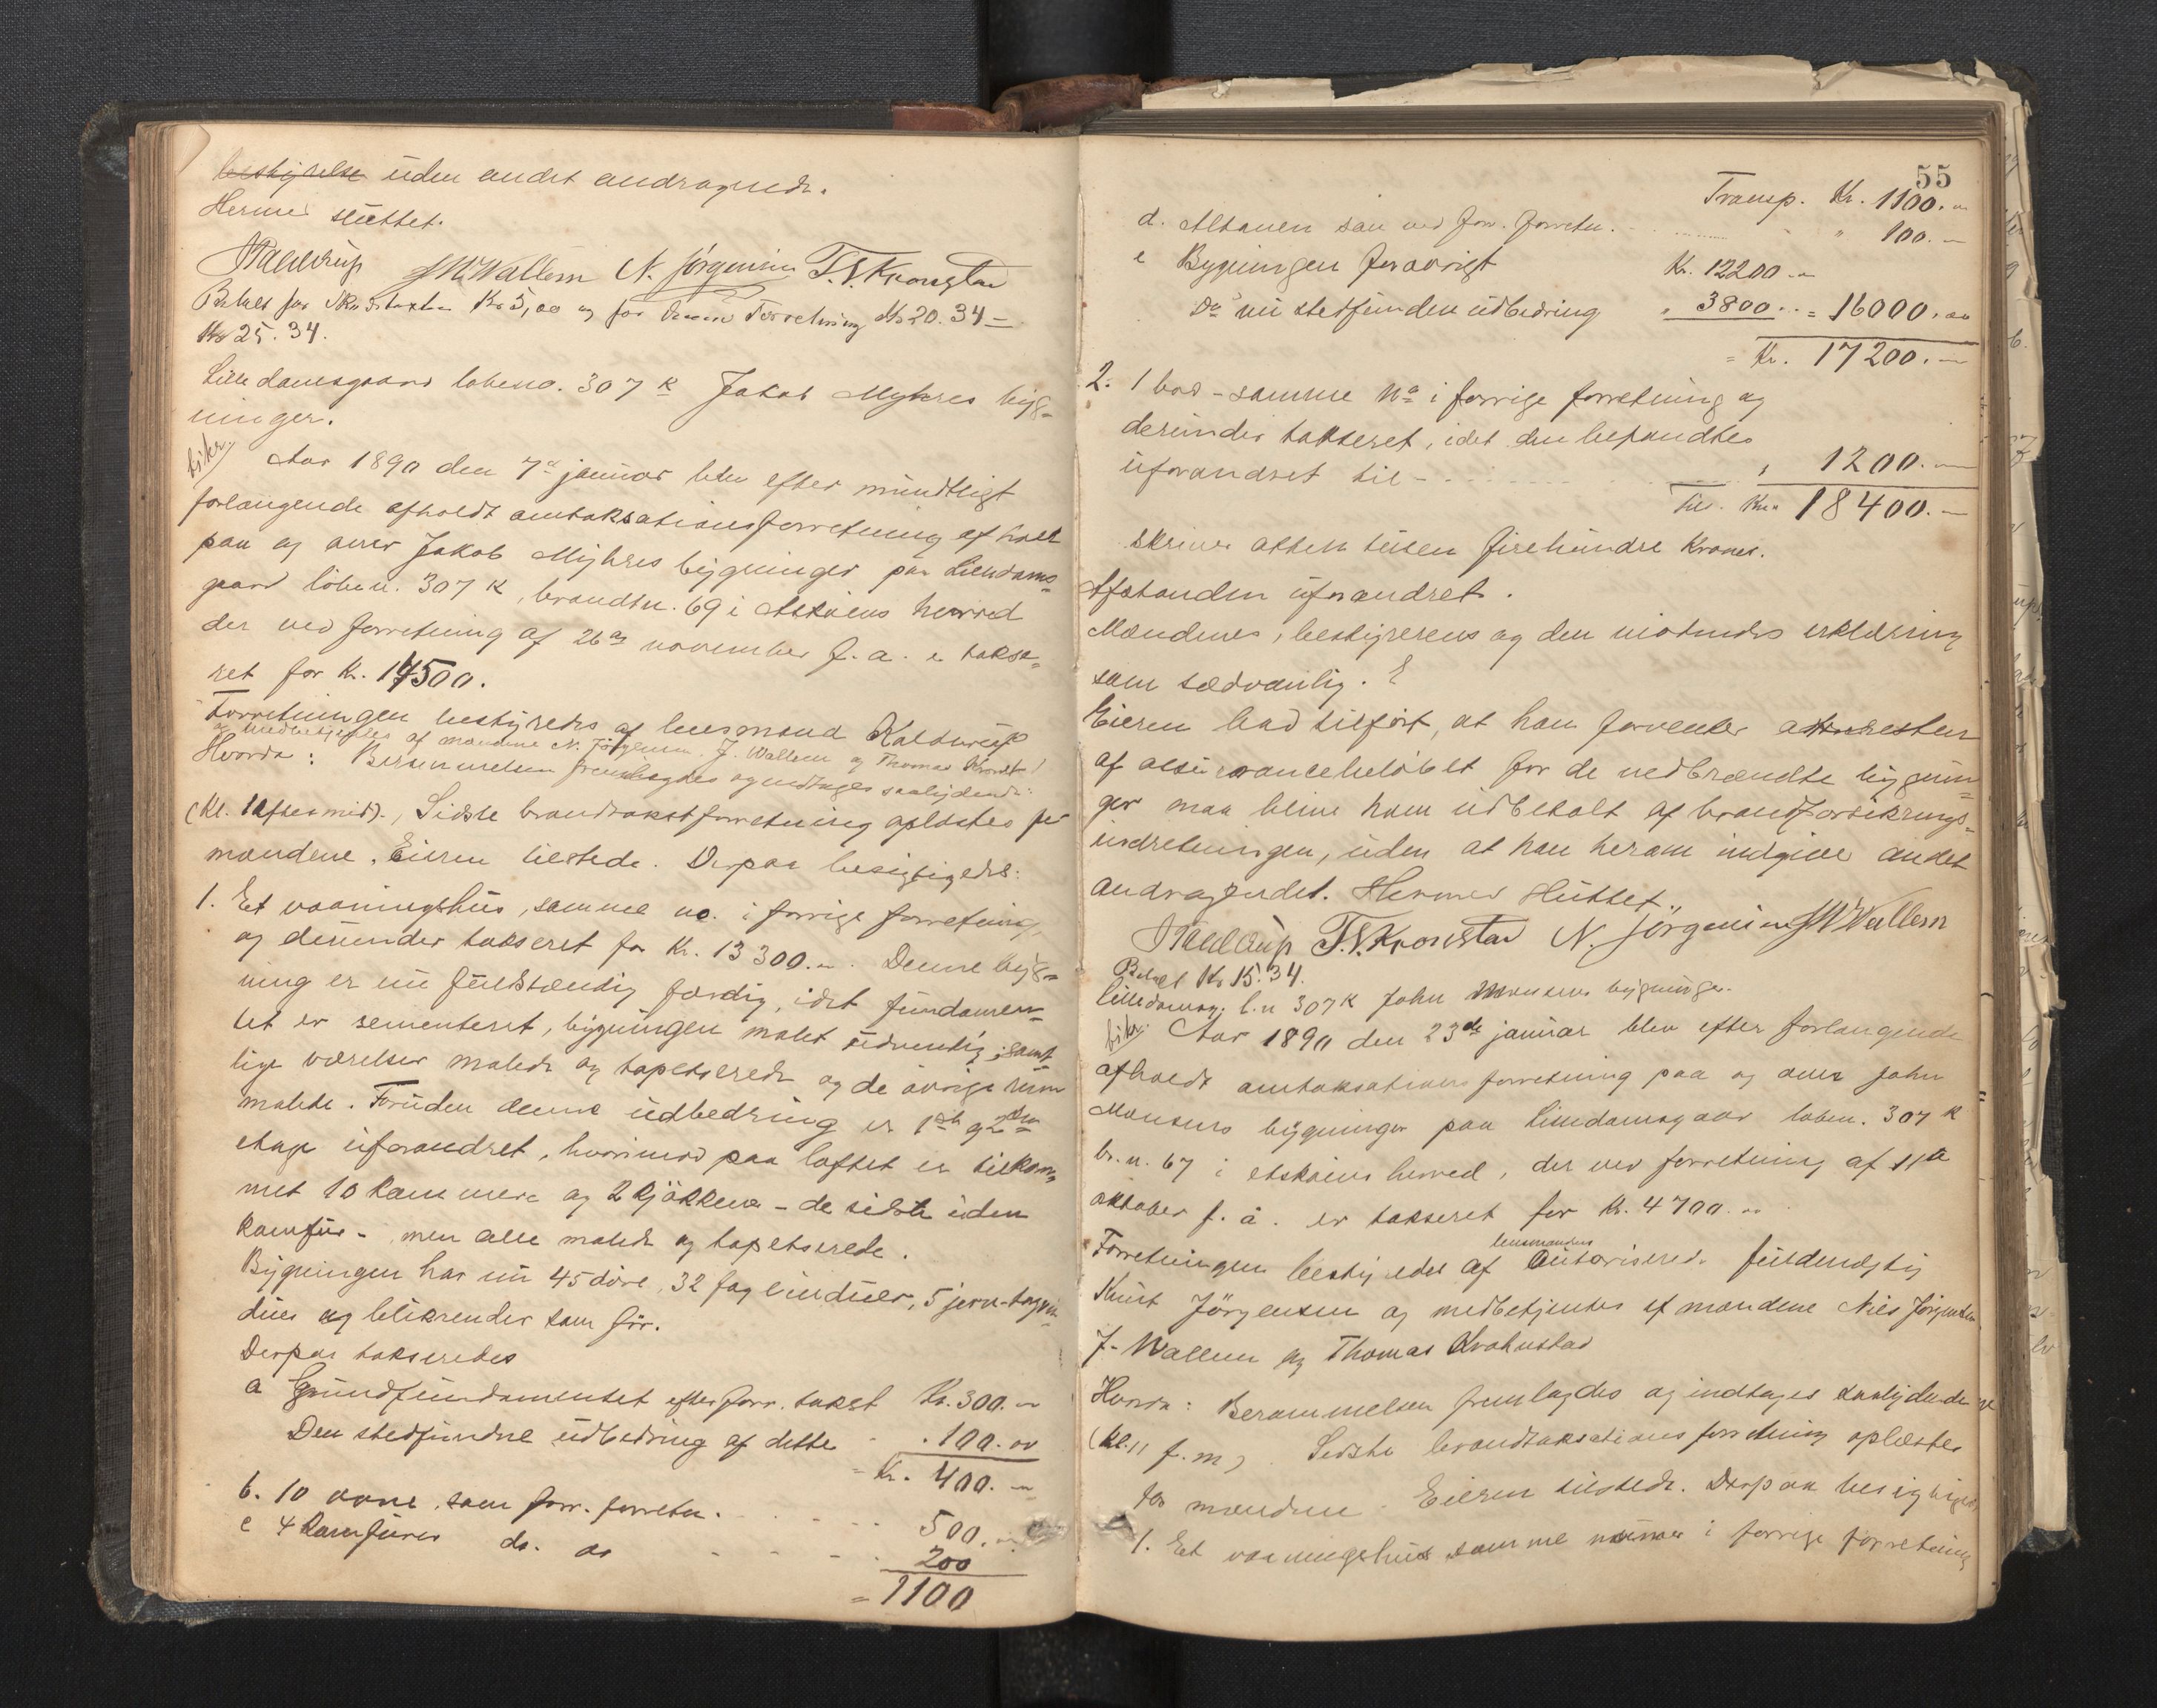 bestyrelse uden andet andragende.
Hermed sluttet.
Kaldrup JWWallem N. Jörgensen T. N. Kronstad
Betalt for Skadetaxten Kr 5,00 og for denne Forretning Kr 20.34 =
Kr 25.34.
Lille damsgaard løbeno. 307 k Jakob Myhres byg=
ninger.
Aar 1890 den 7de januar blev efter mundtligt
forlangende afholdt omtaksationsforretning afholdt
paa og over Jakob Myhres bygninger paa Lilledams=
gaard löben. 307 k, brandtn. 69 i Askøens herred
der ved forretning af 26de november f. a. er takse=
ret for Kr. 14500.
Forretningen bestyredes af lensmand Kaldrup
og medbetjentes af mændene N. Jörgensen, J. Wallem og Thomas Kronst.
Hvorda: Berammelsen fremlagdes og indtages saalydende:
(Kl. 1 eftermid)., Sidste brandtakstforretning oplæstes for
mændene. Eieren tilstede. Derpaa besigtigedes:
1. Et vaaningshus, samme no. i forrige forretning,
og derunder takseret for Kr. 13300.„. Denne byg=
ning er nu fuldstændig færdig, idet fundamen=
tet er sementeret, bygningen malet udvendig, samt=
lige værelser malede og tapetserede og de övrige rum
malede. Foruden denne udbedring er 1ste og 2den
etage uforandret, hvorimod paa loftet er tilkom=
met 10 kammere og 2 kjökkener - de sidste uden
komfur - men alle malede og tapetserede.
Bygningen har nu 45 döre, 32 fag vinduer, 5 jern-tagvin=
duer og blikrender som för.
Derpaa takseredes
a Grundfundamentet efter forr. takst Kr. 300.„
Den stedfundne udbedring af dette „ 100.00
= Kr. 400.„
b. 10 ovne, som forr. forretn. 500.„
c 4 Komfurer do. do 200
= 1100
55
Transp. Kr. 1100.„
d. Altanen som ved forr. forretn. „ 100.„
e Bygningen foravrigt Kr. 12200„
Do nu stedfunden udbedring „ 3800„ = 16000.00
= Kr. 17200.„
2. 1 bod - samme No i forrige forretning og
derunder takseret, idet den befandtes
uforandret til „ 1200.„
Til. Kr. 18400.„
skriver atten tusen firehundre Kroner.
Afstanden uforandret.
Mændenes, bestyrerens og den mötendes erklæring
som sædvanlig.
Eieren bad tilført, at han forventer at resten
af assurancebeløbet for de nedbrændte bygnin=
ger maa blive ham udbetalt af brandforsikrings=
indretningen, uden at han herom indgiver andet
andragendet. Hermed sluttet.
Kaldrup T. N. Kronstad N. Jörgensen JWWallem
Betalt Kr 15.34.
Lilledamsg. l.n 307 k John Monsens bygninger.
Aar 1890 den 23de januar blev efter forlangende
afholdt omtaksationsforretning paa og over John
Monsens bygninger paa Lilledamsgaar löben. 307 k
br. n. 67 i Askøens herred, der ved forretning af 11te
oktober f. å. er takseret for Kr. 4700.„
Forretningen bestyredes af lensmandens autoriserede fuldmægtig
Knut Jörgensen og medbetjentes af mændene Nils Jörgensen
J. Wallem og Thomas Krohnstad
Hvorda: Berammelsen fremlagdes og indtages saalydende
(Kl. 11 f. m). Sidste brandtaksationsforretning oplæstes
for mændene. Eieren tilstede. Derpaa besigtiges
1. Et vaaningshus samme nummer i forrige forretning